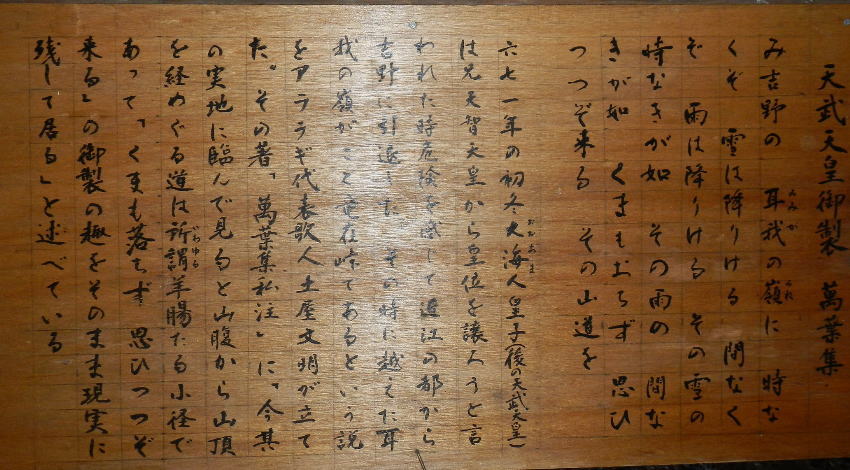 天武天皇御製 萬葉集
み吉野の 耳我の嶺に 時な
くぞ 雪は降りける 間なく
ぞ 雨は降りける その雪の
時なきが如 その雨の 間な
きが如 くまもおちず 思ひ
つつぞ来る その山道を
六七一年の初冬大海人皇子(後の天武天皇)
は兄天智天皇から皇位を譲ろうと言
われた時危険を感じて近江の都から
吉野に引返した その時に越えた耳
我の嶺がここ竜在峠であるという説
をアララギ代表歌人土屋文明が立て
た。その著「萬葉集私注」に「今其
の実地に臨んで見ると山腹から山頂
を経めぐる道は所謂羊腸たる小径で
あって「くまも落ちず 思ひつつぞ
来る」の御製の趣をそのまま現実に
残して居る」と述べている